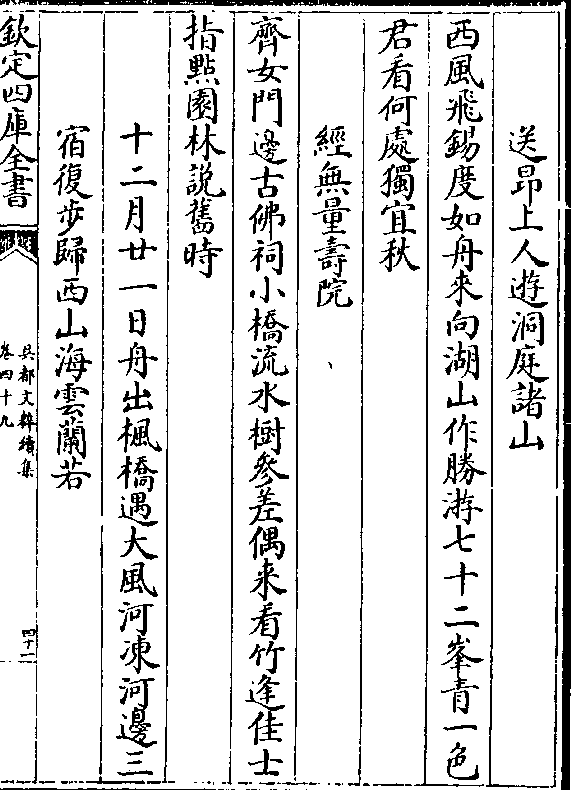 送昂上人遊洞庭諸山
西風飛錫度如舟來向湖山作勝游七十二峯青一色
君看何處獨宜秋
經無量壽院
齊女門邊古佛祠小橋流水樹參差偶来看竹逢佳士
指點園林說舊時
十二月廿一日舟出楓橋遇大風河凍河邊三
宿復步歸西山海雲蘭若
欽定四庫全書
吳都文粹續集
卷四十九
四十一